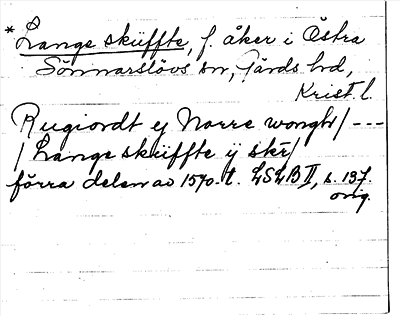 * Lange skiiffte, f. åker i Östra
Sönnarslövs sn, Gärds hd,
Krist. l.
Rugiordt ej Norre wongh/ ---
/ Lange skiiffte ij skr/
förra delen av 1570-t. LSLB II, s. 137.
orig.